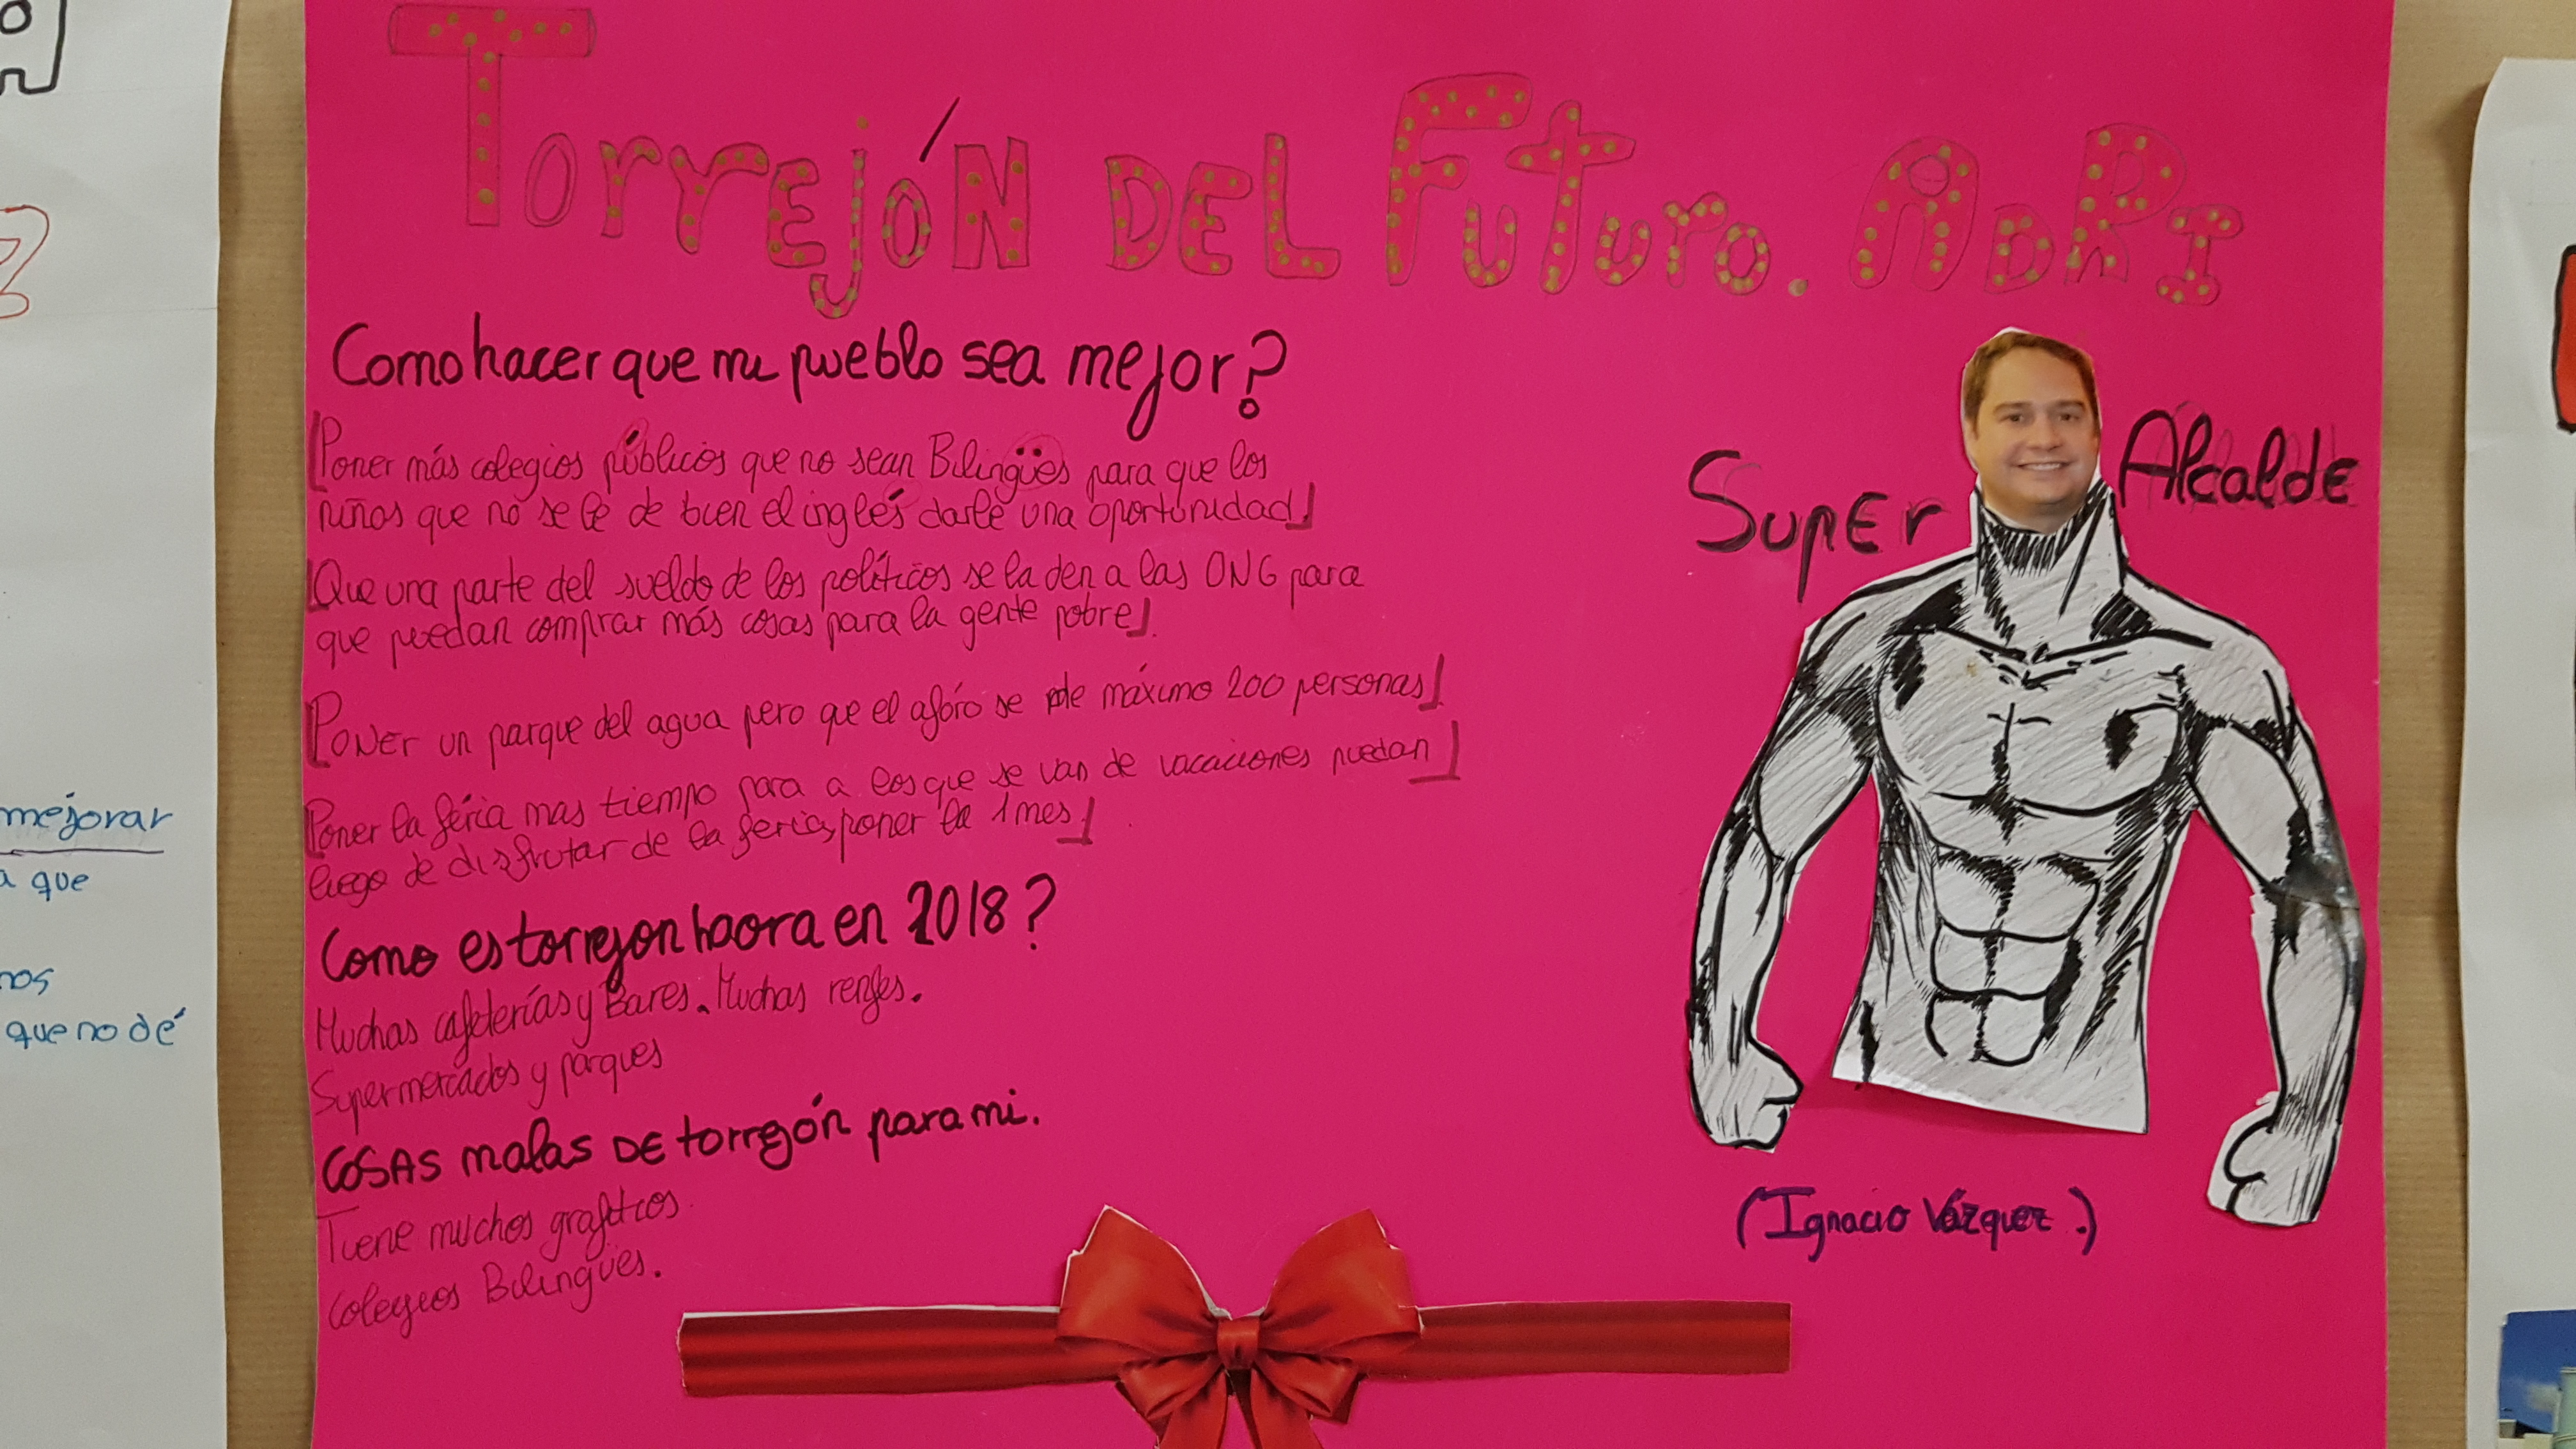 Torrejón del Futuro. Adri
Como hacer que mi pueblo sea mejor?
Poner más colegios públicos que no sean Bilingües para que los
niños que no se le de bien el inglés darle una oportunidad
Que una parte del sueldo de los políticos se la den a las ONG para
que puedan comprar más cosas para la gente pobre
Poner un parque del agua pero que el aforo se de máximo 200 personas
Poner la feria mas tiempo para a los que se van de vacaciones puedan
luego de disfrutar de la feria, poner la 1 mes
Como es torrejon haora en 2018?
Muchas cafeterías y Bares. Muchas renfes.
Supermercados y parques
COSAS malas DE torrejón para mi.
Tiene muchos
Colegios Bilingües.
Super Alcalde
(Ignacio Vázquez.)
mejorar
a que
nos
que no dé